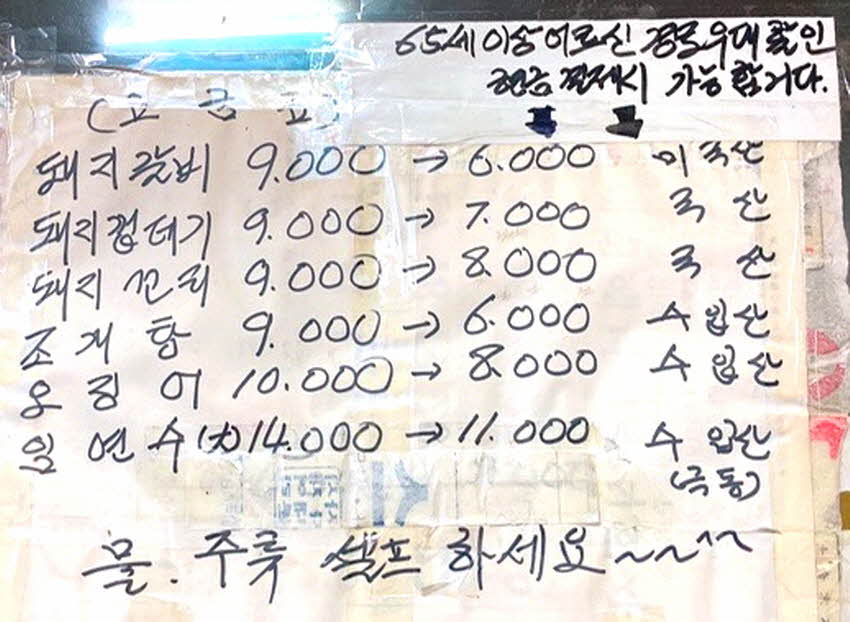 65세 이상 어르신 경로우대 할인
현금 결제시 가능합니다.
(요금표)
돼지갈비 9.000 → 6.000 미국산
돼지껍데기 9.000 → 7.000 국산
돼지꼬리 9.000 → 8.000 국산
조개탕 9.000 → 6.000 수입산
오징어 10.000 → 8.000 수입산
임연수(大) 14.000 → 11.000 수입산
(극동)
물. 주류 셀프 하세요~~^~